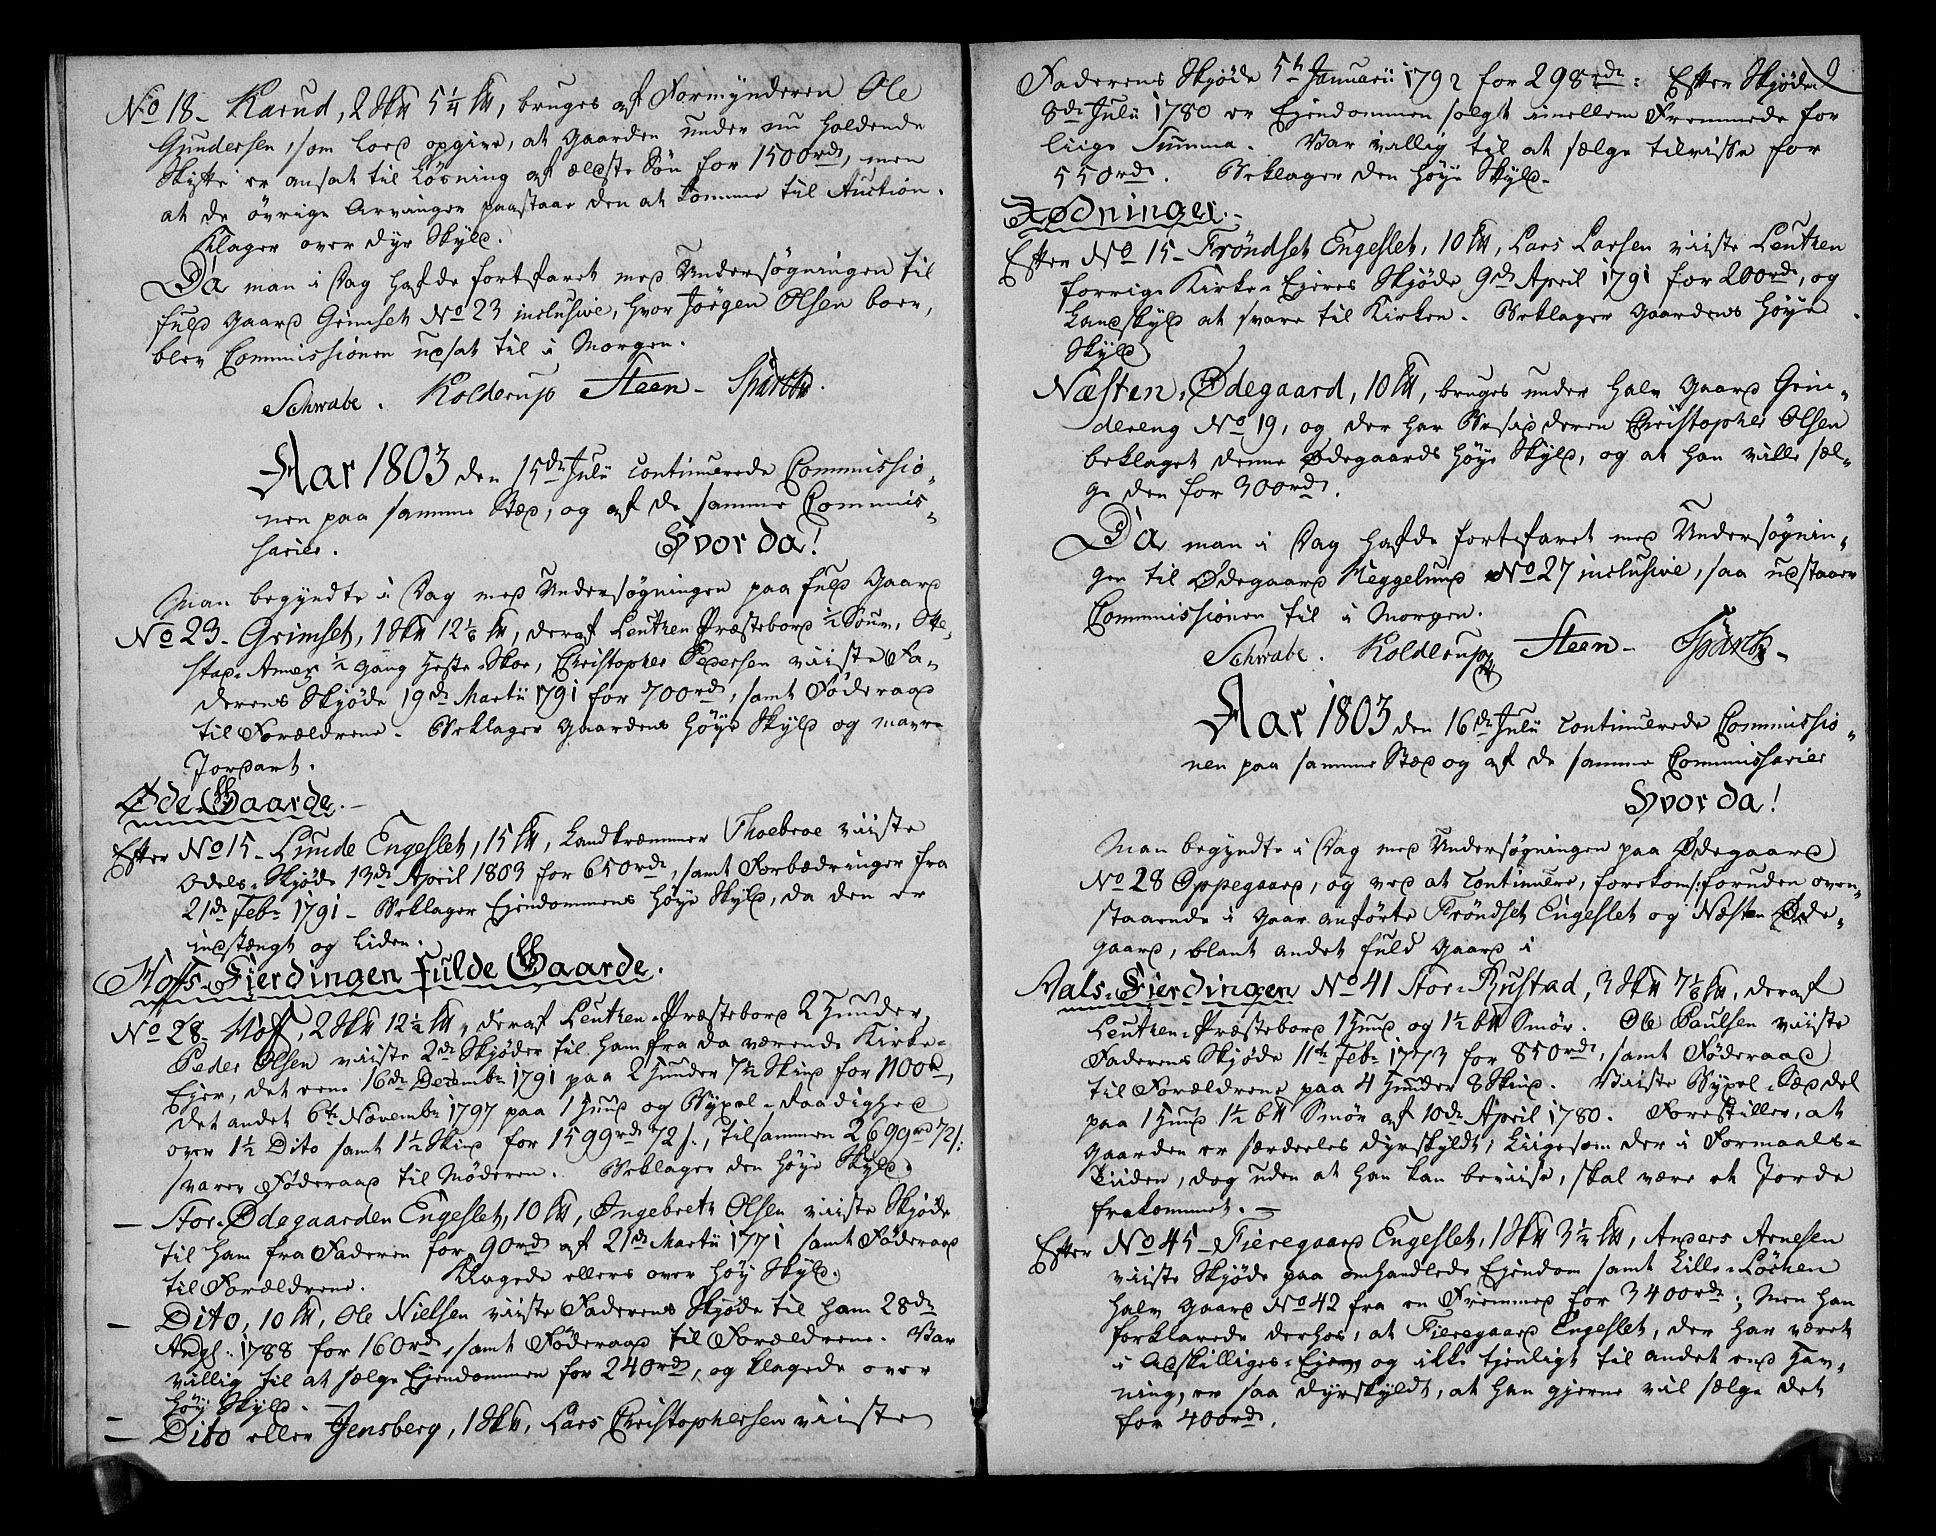 No 18- Karud, 2 Sk℔ 5¼ ℔, bruges af Formynderen Ole
Gundersen, som lod opgive, at Gaarden under nu holdende
Skifte er ansat til Løsning af ældste Søn for 1500rd, men
at de øvrige Arvinger paastaar den at komme til Auction.
Klager over dyr Skyld.
Da man i Dag hafde fortfaret med Undersøgningen til
fuld Gaard Grimset No 23 inclusive, hvor Jørgen Olsen boer,
blev Commissionen udsat til i Morgen.
Schwabe. Kolderup Steen- Spärck.
Aar 1803 den 15de Julii continuerede Commissio„
nen paa samme Sted, og af de samme Commis„
sarier. Hvor da!
Man begyndte i Dag med Undersøgningen paa fuld Gaard
No 23- Grimset, 1 Sk℔ 12⅛ ℔, deraf Leuthen Præstebord ½ Souv, Otte-
stad-Amen ½ gang Heste-Skoe, Christopher Pedersen viiste Fa-
derens Skjøde 19de Martii 1791 for 700rd, samt Føderaad
til Forældrene. Beklager Gaardens høye Skyld og mavre
Jordart.
Øde Gaarde.-
Efter No 15- Lunde Engeslet, 15 ℔, Landkræmmer Thoebroe viiste
Odels-Skjøde 13de April 1803 for 650rd, samt Forbædringer fra
21de Febr 1791- Beklager Ejendommens høye Skyld, da den er
indstængt og liden.
Hoffs-Fierdingen fulde Gaarde.
No 28- Hoff, 2 Sk℔ 12½ ℔, deraf Leuthen-Præstebord 2 Hunder,
Peder Olsen viiste 2de Skjøder til ham fra da værende Kirke-
Ejer, det eene 16de Decembr 1791 paa 2 Hunder 7½ Skind for 1100rd,
det andet 6te Novembr 1797 paa 1 Hund og Bøxel-Raadighed
over 1½ Dito samt 1½ Skind for 1599rd 72 s., tilsammen 2699rd 72 s:
svarer Føderaad til Moderen. Beklager den høye Skyld.
— Stor-Ødegaarden Engeslet, 10 ℔, Ingebreth Olsen viiste Skjøde
til ham fra Faderen for 90rd af 21de Martii 1771 samt Føderaad
til Forældrene. Klagede ellers over høy Skyld.
— Dito, 10 ℔, Ole Nielsen viiste Faderens Skjøde til ham 28de
Augs: 1788 for 160rd, samt Føderaad til Forældrene. Var
villig til at sælge Ejendommen for 240rd, og klagede over
høy Skyld.
— Dito eller Jensberg, 1 Sk℔, Lars Christophersen viiste
Faderens Skjøde 5te Januarii 1792 for 298rd: Efter Skjøde
8de Julii 1780 er Ejendommen solgt imellem Fremmede for
liige Summa. Var villig til at sælge tilvisse for
550rd. Beklager den høye Skyld.
Rødninger.-
Efter No 15- Trøndset Engeslet, 10 ℔, Lars Larsen viiste Leuthen
forrige Kirke-Ejeres Skjøde 9de April 1791 for 200rd, og
Landskyld at svare til Kirken. Beklager Gaardens høye
Skyld
Næsten-Ødegaard, 10 ℔, bruges under halv Gaard Grin„
dereng No 19, og der har Besidderen Christopher Olsen
beklaget denne Ødegaards høye Skyld, og at han ville sæl„
ge den for 300rd.
Da man i Dag hafde fortfaret med Undersøgnin„
gen til Ødegaard Heggelund No 27 inclusive, saa udstaaer
Commmissionen til i Morgen.
Schwabe. Kolderup Steen- Spärck-
Aar 1803 den 16de Julii continuerede Commissio„
nen paa samme Sted og af de samme Commissarier
Hvor da!
Man begyndte i Dag med Undersøgningen paa Ødegaard
No 28 Oppegaard, og ved at continuere, forekom, foruden oven„
staaende i Gaar anførte Trøndset Engeslet og Næsten Øde„
gaard, blant andet fuld Gaard i
Aals-Fierdingen No 41 Stor-Rustad, 3 Sk℔ 7⅛ ℔, deraf
Leuthen-Præstebord 1 Hund og 1½ b℔ Smør. Ole Paulsen viiste
Faderens Skjøde 11te Febr 1773 for 850rd, samt Føderaad
til Forældrene paa 4 Hunder 8 Skind. Viiste Bøxel-Sæddel
paa 1 Hund 1½ b℔ Smør af 10de April 1780. Forestiller, at
Gaarden er særdeeles dyrskyldt, liigesom der i Formaals-
Tiiden, dog uden at han kan beviise, skal være et Jorde
frakommet. -
Efter No 45- Fieregaard Engeslet, 1 Sk℔ 3½ ℔, Anders Arnesen
viiste Skjøde paa omhandlede Ejendom samt Lille-Løchen
halv Gaard No 42 fra en Fremmed for 3400rd; Men han
forklarede derhos, at Fieregaard Engeslet, der har været
i Adskilliges-Eje og ikke tjenligt til andet end Hav„
ning, er saa dyrskyldt, at han gjerne vil sælge det
for 400rd.